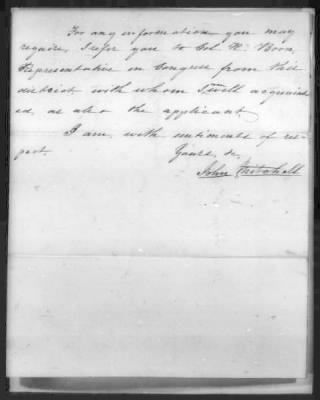 For any information you may
require, I refer you to Col. H. Boon,
Representative in Congress from this
district, with whom I am well acquaint
ed, as also the applicant
I am, with sentiments of res-
pect.     Yours, &c,
John Mitchell